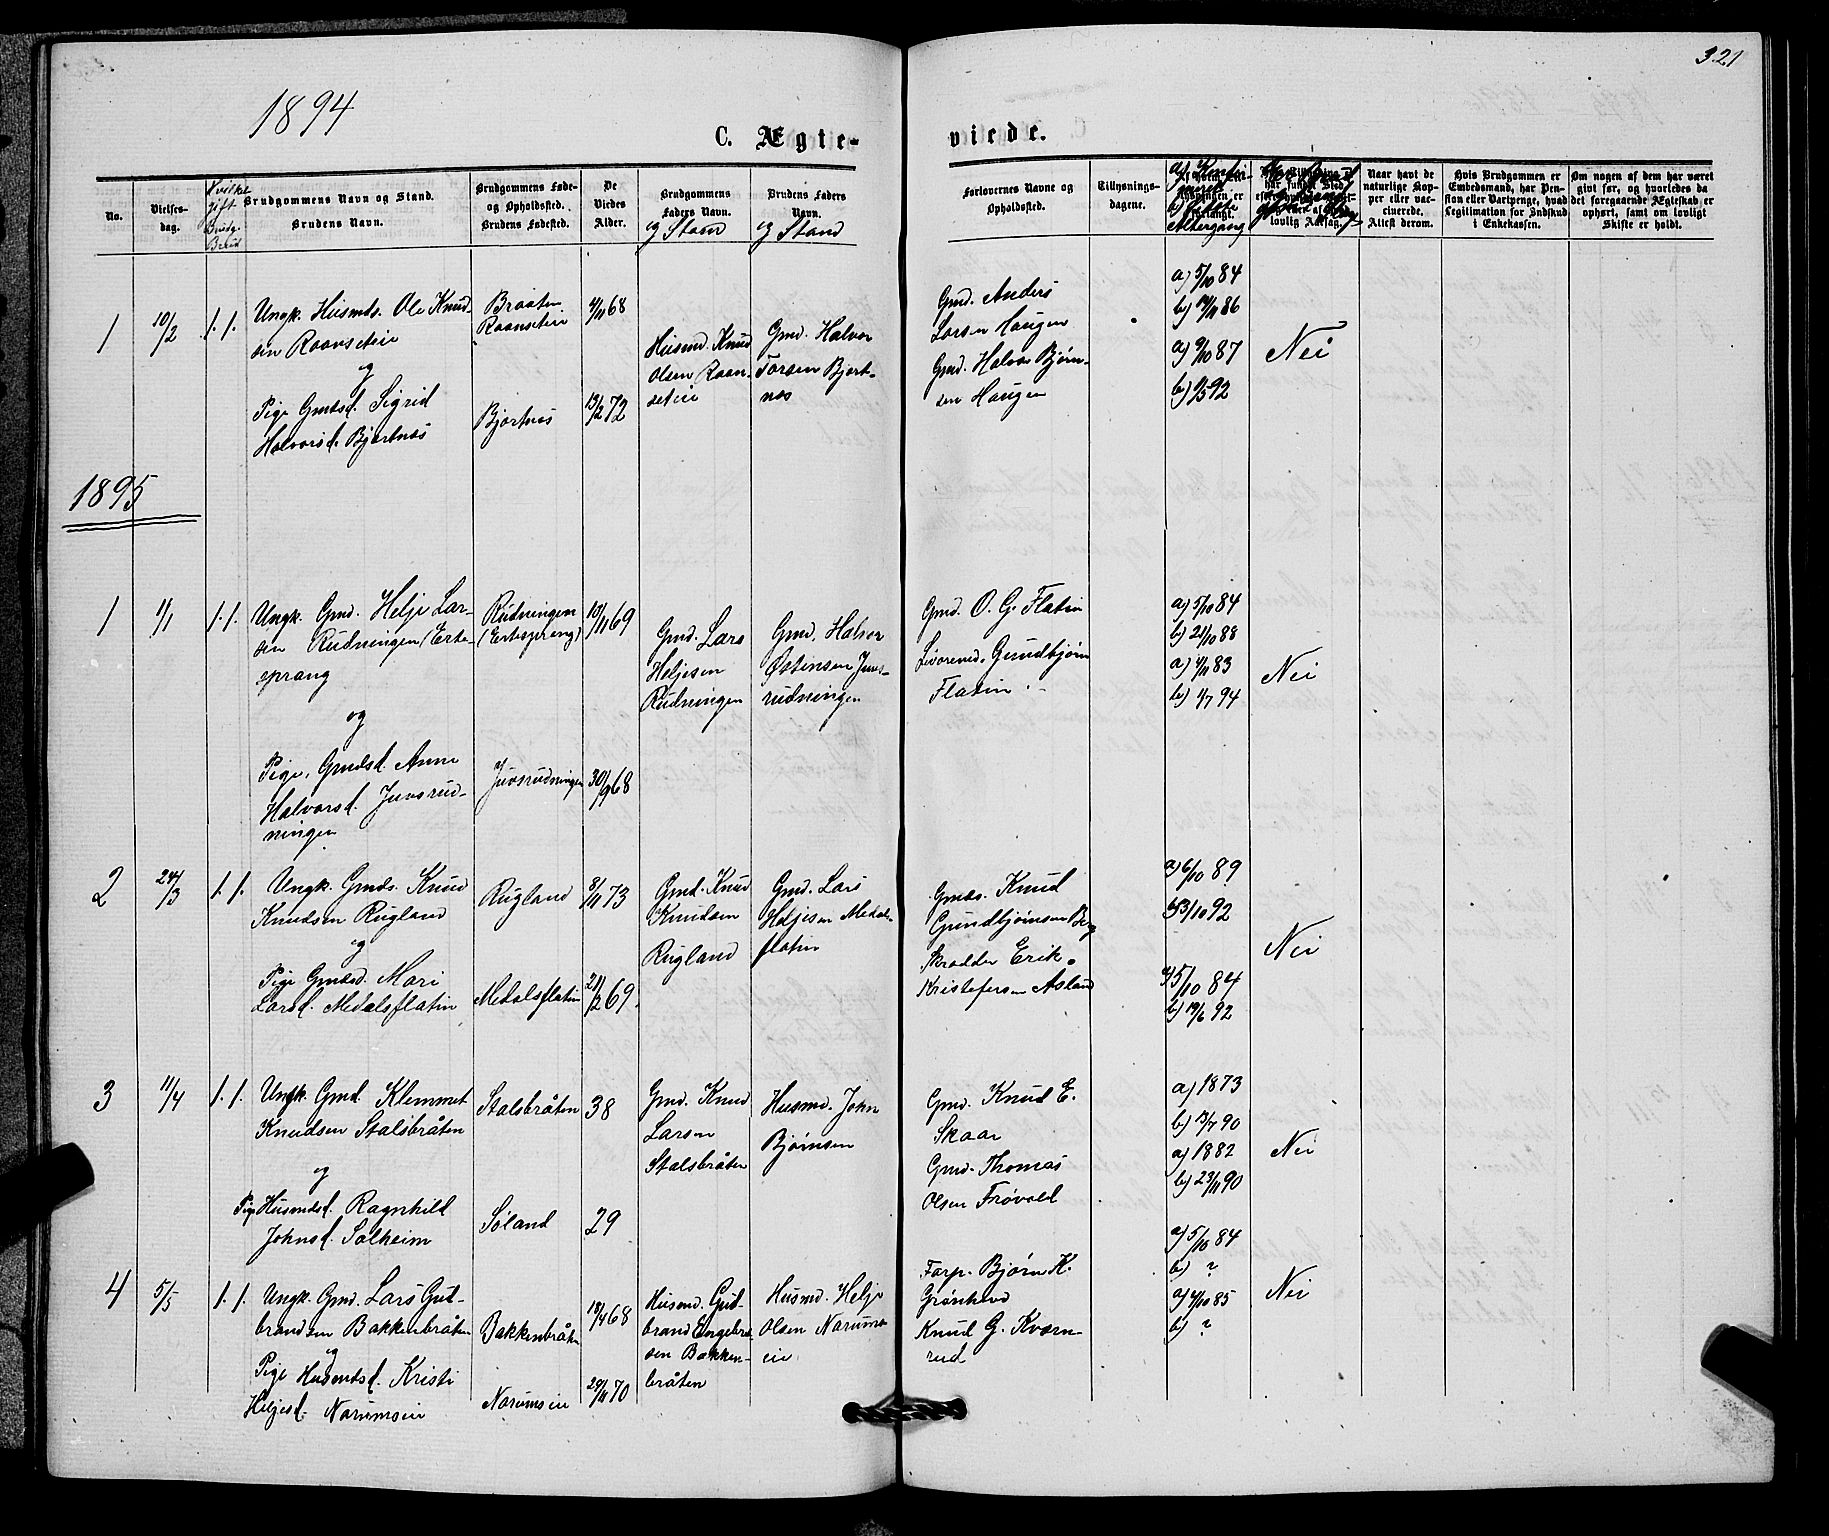 321
1894
C. Ægte-
viede.
No.
Vielses-
dag.
Hvilke
gift.
Brudg.
Brud
Brudgommens Navn og Stand.
Brudens Navn.
Brudgommens Føde-
og Opholdsted.
Brudens Fødested.
De
Viedes
Alder.
Brudgommens
Faders Navn.
og Stand
Brudens Faders
Navn.
og Stand
Forlovernes Navne og
Opholdsted.
Tillysnings-
dagene.
b) Sidste
Altergang
lovlig Aarsag.
Naar havt de
naturlige Kop-
per eller vac-
cinerede.
Attest derom.
Hvis Brudgommen er
Embedsmand, har Pen-
sion eller Vartpenge, hvad
Legitimation for Indskud
i Enkekassen.
Om nogen af dem har været
givt før, og hvorledes da
det foregaaende Ægteskab er
ophørt, samt om lovligt
Skifte er holdt.
1
10/2
1. 1.
Ungk. Husmds. Ole Knud-
sen Raanseteie
og
Pige Gmdsd. Sigrid
Halvorsd. Bjertnes
Braaten
Raanseteie
Bjertnes
4/11 68
13/2 72
Husmd. Knud
Olsen Raan-
seteie
Gmd. Halvor
Torsen Bjert-
nes
Gmd. Anders
Larsen Haugen
Gmd. Halvor Bjørn-
sen Haugen
a) 5/10 84
b) 14/11 86
a) 9/10 87
b) 1/5 92
Nei
1895
1
11/1
1. 1.
Ungk. Gmd. Helje Lar-
sen Rudningen (Erte-
sprang
og
Pige, Gmdsd. Anne
Halvorsd. Juvsrud-
ningen
Rudningen
(Ertesprang)
Juvsrudningen
10/11 69
30/9 68
Gmd. Lars
Heljesen
Rudningen
Gmd. Halvor
Østensen Juvs-
rudningen
Gmd. O. G. Flatin
Livørend. Gundbjørn
Flatin
a) 5/10 84
b) 21/10 88
a) 4/11 83
b) 1/7 94
Nei
2
24/3
1. 1.
Ungk. Gmds. Knud
Knudsen Rugland
og
Pige Gmdsd. Mari
Larsd. Medalsflatin
Rugland
Medalsflatin
8/11 73
21/2 69.
Gmd. Knud
Knudsen
Rugland
Gmd. Lars
Heljesen Medals-
flatin
Gmds. Knud
Gundbjørnsen Berg
Skrædder Erik
Kristofersen Asland
a) 6/10 89
b) 3/10 92
a) 5/10 84
b) 19/6 92
Nei
3
11/4
1. 1.
Ungk. Gmd. Klemmet
Knudsen Stalsbråten
og
Pige Husmdsd. Ragnhild
Johnsd. Solheim
Stalsbråten
Søland
38
29
Gmd. Knud
Larsen
Stalsbråten
Husmd. John
Bjørnsen
Gmd. Knud E.
Skaar
Gmd. Thomas
Olsen Frøvold
a) 1873
b) 13/7 90
a) 1882
b) 23/11 90
Nei
4
5/5
1. 1.
Ungk. Gmd. Lars Gud-
brandsen Bakkenbråten
og
Pige Husmdsd. Kristi
Heljesd. Narumseie
Bakkenbråten
Narumseie
18/4 68
29/11 70
Husmd. Gud-
brand Engebret-
sen Bakken-
bråten
Husmd. Helje
Olsen Narums-
eie
Forp. Bjørn K.
Grønhovd
Knud G. Kværn-
rud
a) 5/10 84
b) ?
a) 4/10 85
b) ?
Nei